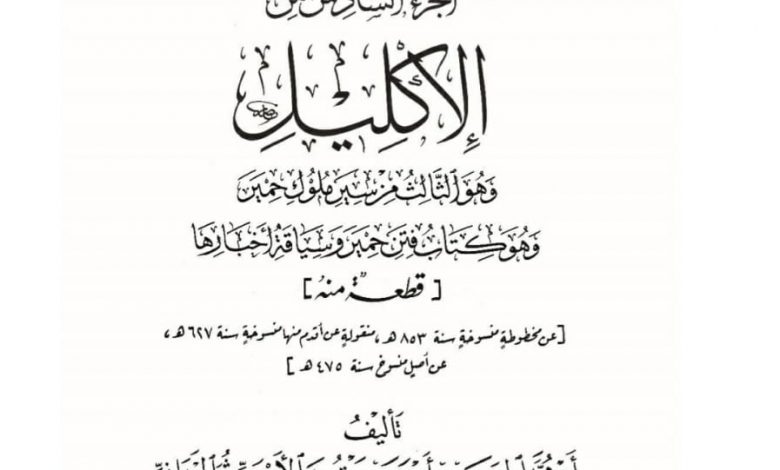 الجزء السادس من
الإكليل
وَهُوَ الثَّالِثُ مِنْ سِيَرِ مُلُوكِ حِمْيَرَ
وَهُوَ كِتَابُ فِتَنِ حِمْيَرَ وَسِيَاقَةُ أَخْبَارِهَا
[ قطعة منهُ ]
[عن مخطوطةٍ منسوخةٍ سنة ٨٥٣ هـ، منقولةٍ عن أقدم منها منسوخةٍ سنة ٦٢٧ هـ،
عن أصلٍ منسوخ سنة ٤٧٥ هـ ]
تَأليفُ